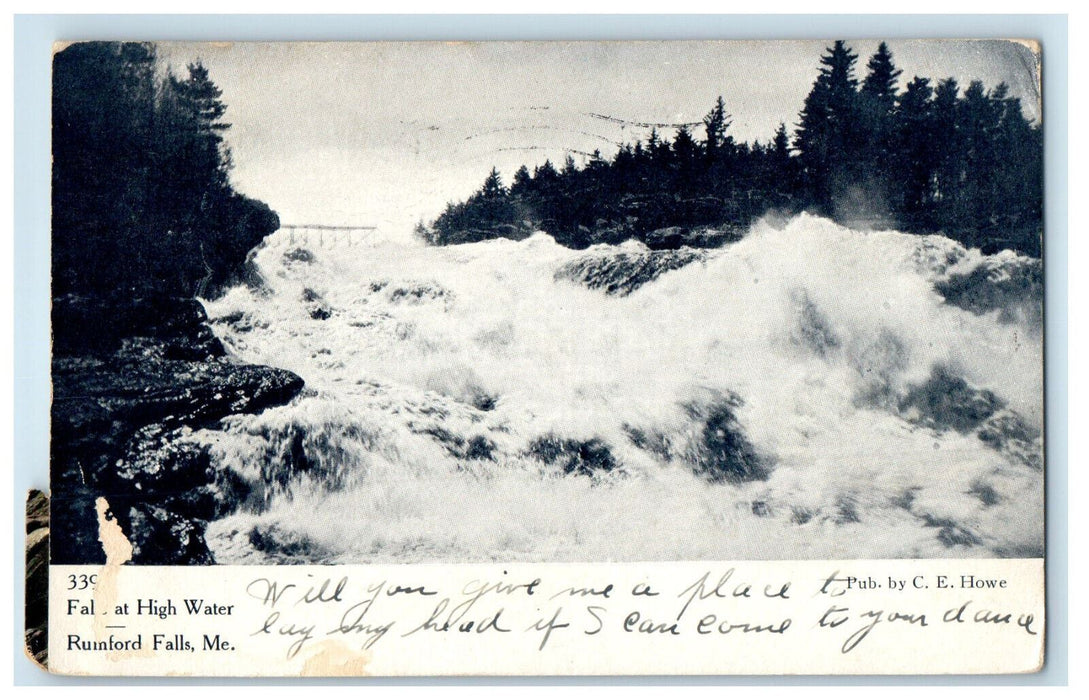 339
Falls at High Water
Rumford Falls, Me.
Pub. by C. E. Howe
Will you give me a place to
lay my head if I can come to your dance